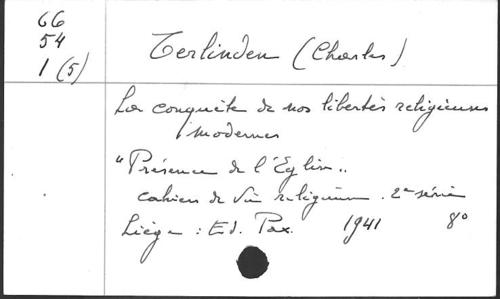 66
54
1 (5)
Terlinden (Charles)
La conquête de nos libertés religieuses
modernes
"Présence de l'Eglise"
cahiers de vie religieuse. 2e série
Liège : Ed. Pax. 1941 8°